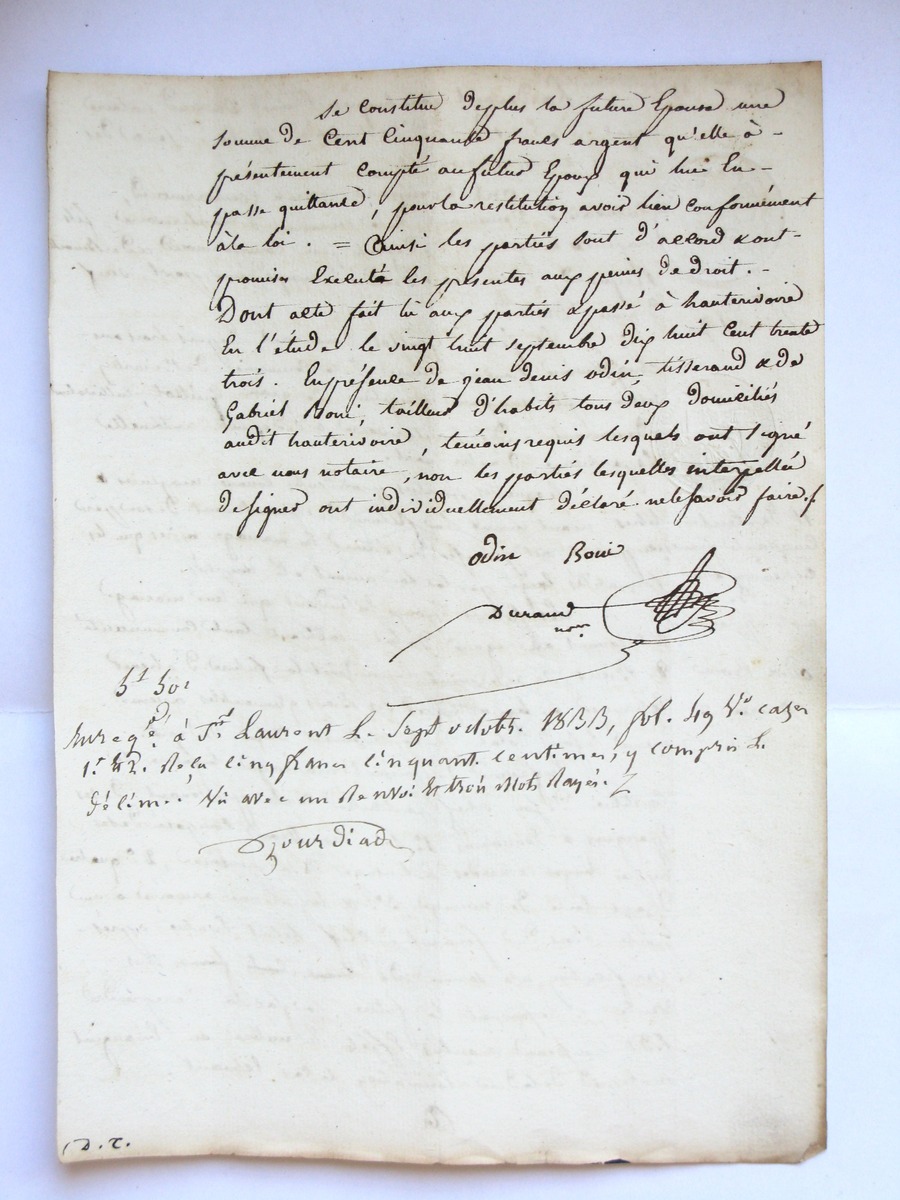 Se Constitue deplus la future Epouse une
somme de Cent Cinquante francs argent qu'elle à -
présentement Compté au futur Epoux qui lui En -
passe quittance, pour la restitution avoir lieu Conformément
à la loi. = Ainsi les parties sont d'accord & ont -
promises Executé les présentes aux peines de droit. -
Dont acte fait lu aux parties & passé à hauterivoire
En l'étude le vingt huit septembre dix huit Cent trente
trois. En présence de jean denis odin, tisserand & de
Gabriel Boni, tailleur d'habits tous deux domiciliés
audit hauterivoire, témoins requis lesquels ont signé
avec nous notaire, non les parties lesquelles interpellée
de signer ont individuellement déclaré ne le savoir faire./.
odin Boni
Durand
nore
5f 50c
Enregé. à St. Laurent le Sept octobr. 1833, fol. 49 Vo. cases
1re & 2. Reçu cinq francs cinquant. centimes, y compris le
décime. Vu avec un Renvoi & trois Mots Rayés.
D. T.